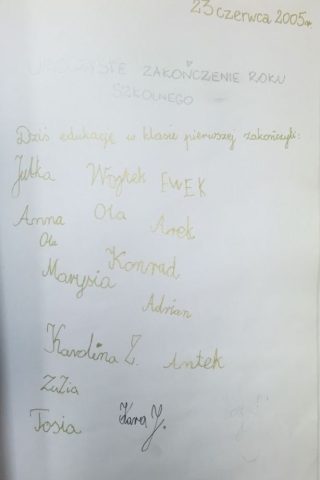 23 czerwca 2005r.
UROCZYSTE ZAKOŃCZENIE ROKU
SZKOLNEGO
Dziś edukację w klasie pierwszej zakończyli:
Julka Wojtek EWEK
Anna Ola Arek
Ola
Konrad
Marysia
Adrian
Karolina Z. Antek
Zuzia
Tosia Kara J.